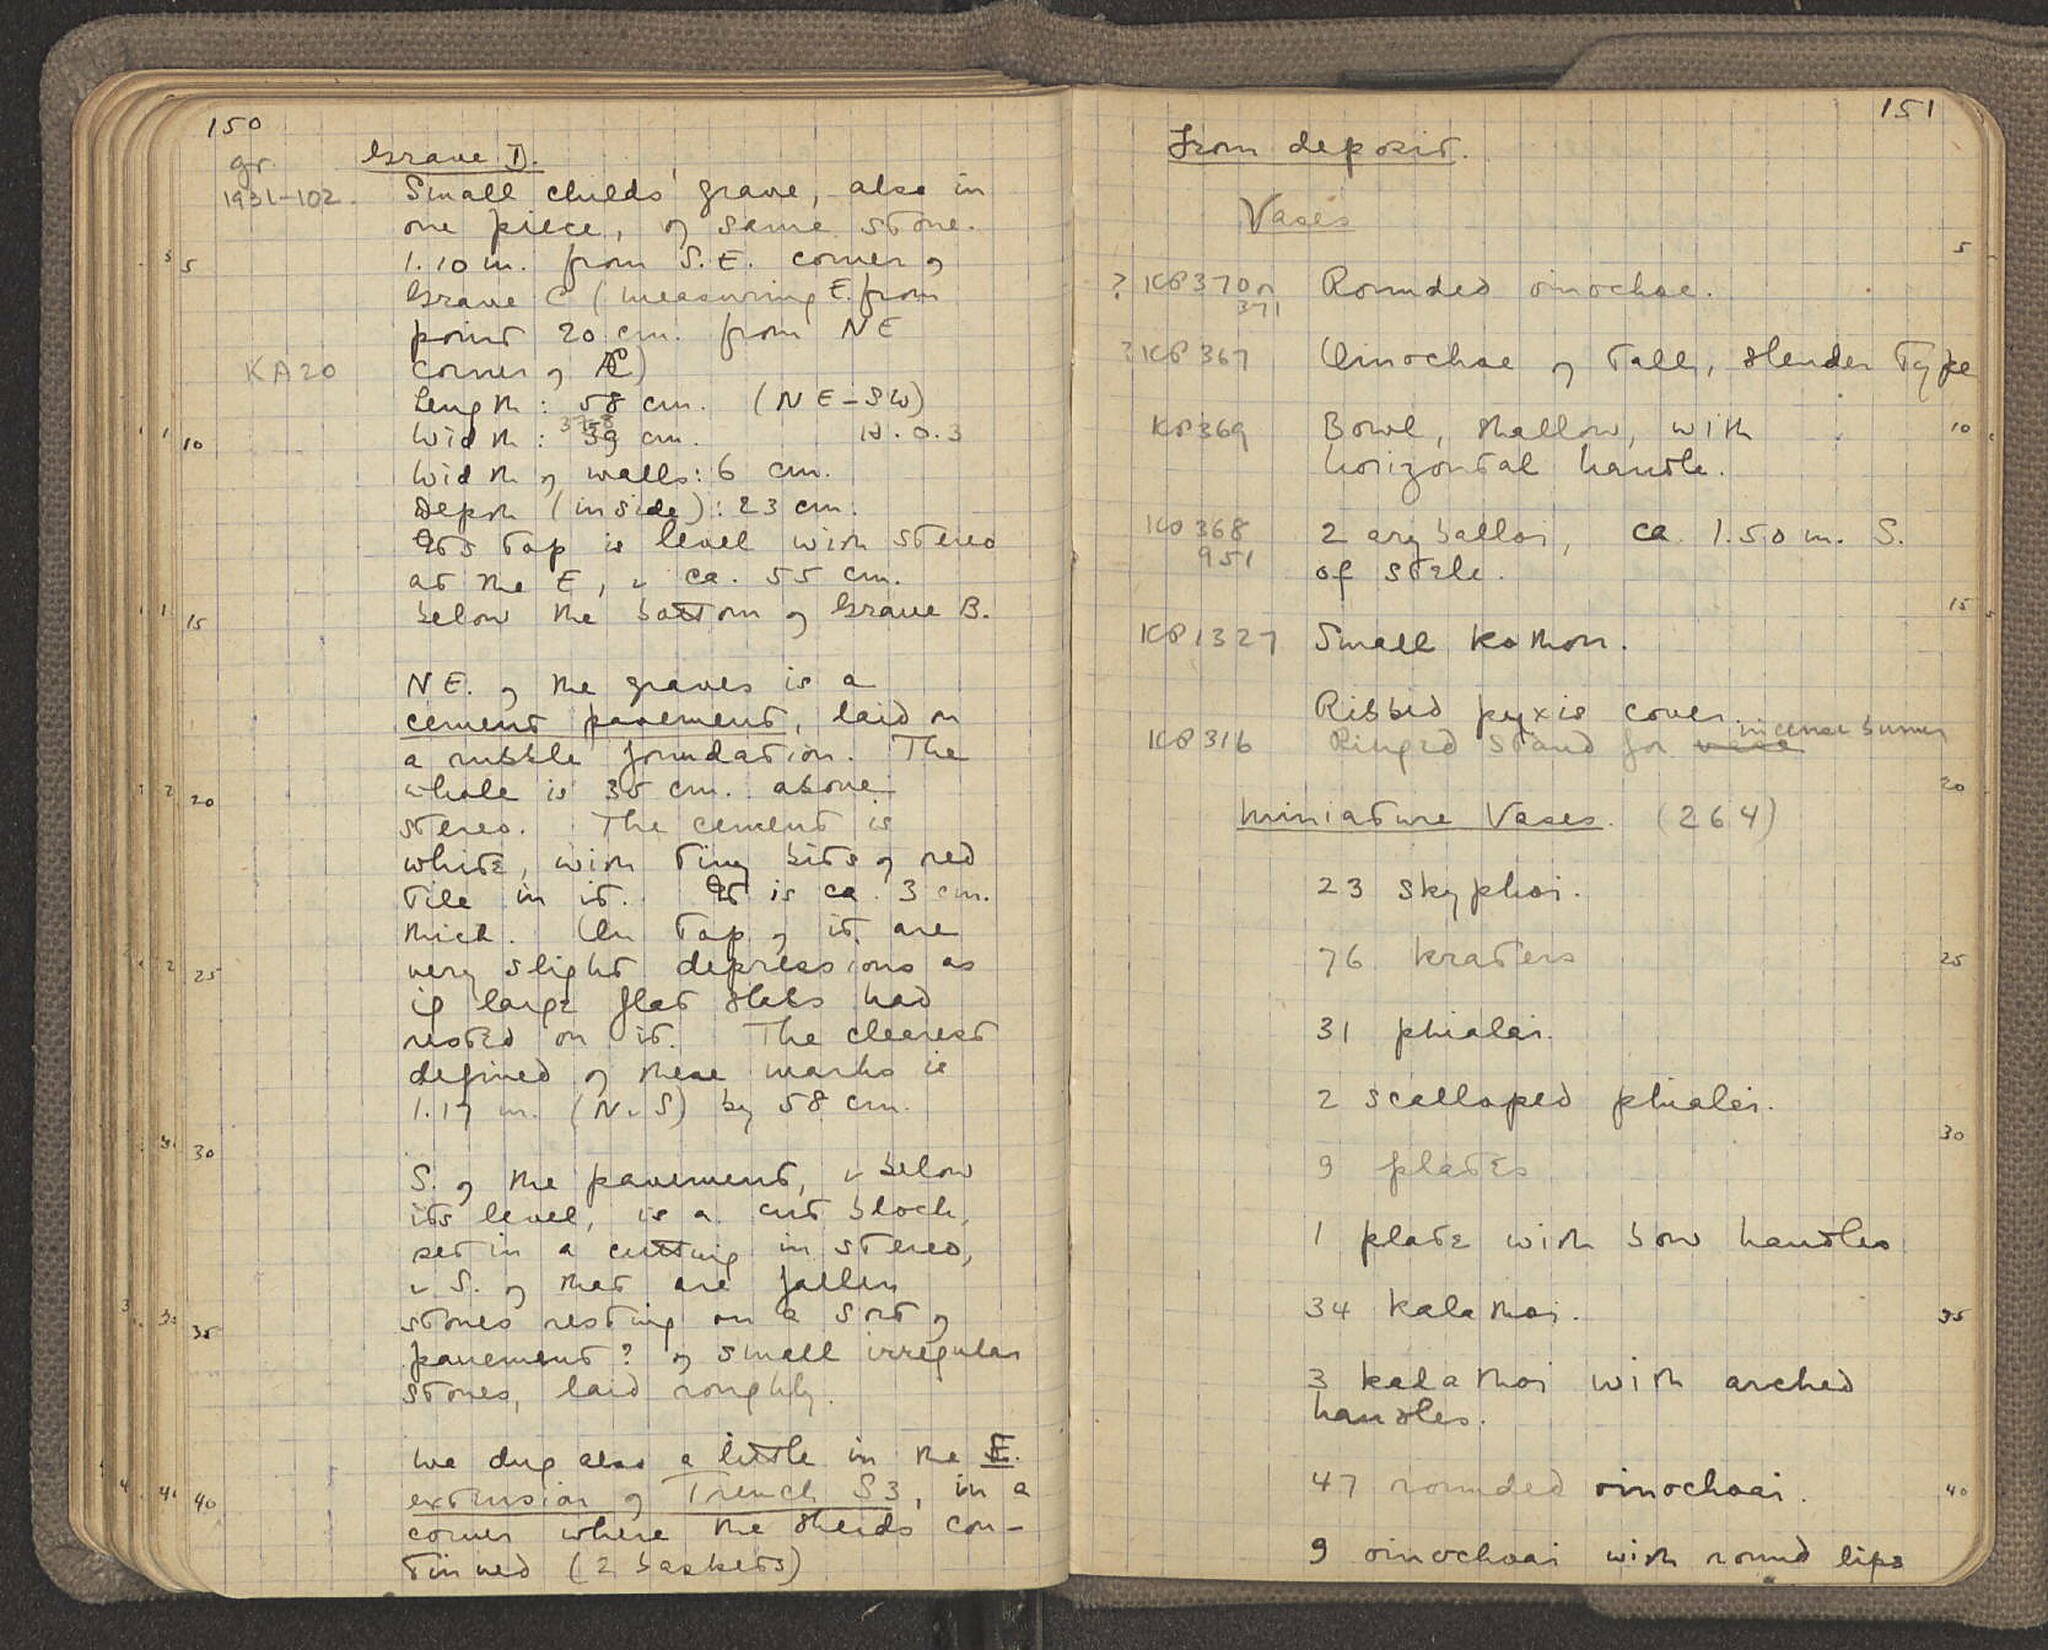 150
gr. Grave D.
1931-102. Small childs' grave, also in
one piece, of same stone.
5 1.10 m. from S.E. corner of
Grave C (measuring E. from
point 20 cm. from NE
KA20 corner of C)
Length: 58 cm. (NE-SW)
37.8
10 Width: 39 cm. H. 0.3
Width of walls: 6 cm.
Depth (inside): 23 cm.
Its top is level with stereo
at the E, & ca. 55 cm.
15 below the bottom of Grave B.
NE. of the graves is a
cement pavement, laid on
a rubble foundation. The
20 whole is 35 cm. above
stereo. The cement is
white, with tiny bits of red
tile in it. It is ca. 3 cm.
thick. On top of it are
25 very slight depressions as
if large flat slabs had
rested on it. The clearest
defined of these marks is
1.17 m. (N-S) by 58 cm.
30
S. of the pavement, & below
its level, is a cut block,
set in a cutting in stereo,
& S. of that are fallen
35 stones resting on a sort of
pavement? of small irregular
stones, laid roughly.
We dug also a little in the E.
40 extension of Trench S3, in a
corner where the sherds con-
tinued (2 baskets)
151
From deposit.
Vases
5
? KP370 or Rounded oinochoe.
371
? KP 367 Oinochoe of tall, slender type
KP369 Bowl, shallow, with 10
horizontal handle.
KP 368 2 aryballoi, ca. 1.50 m. S.
951 of stele.
15
KP1327 Small kothon.
Ribbed pyxis cover.
incense burner
KP 316 Ringed stand for vase
20
Miniature Vases. (264)
23 skyphoi.
76 kraters 25
31 phialai.
2 scalloped phialai.
30
9 plates
1 plate with bow handles
34 kalathoi. 35
3 kalathoi with arched
handles.
47 rounded oinochoai. 40
9 oinochoai with round lips